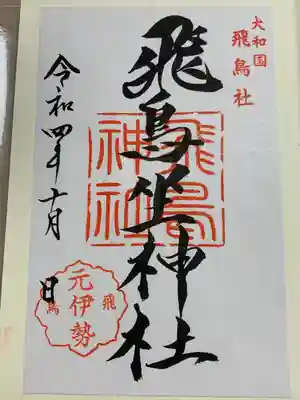 大和国
飛鳥社
飛鳥坐神社
飛鳥
神社
令和四年十月 日
元伊勢
飛
鳥